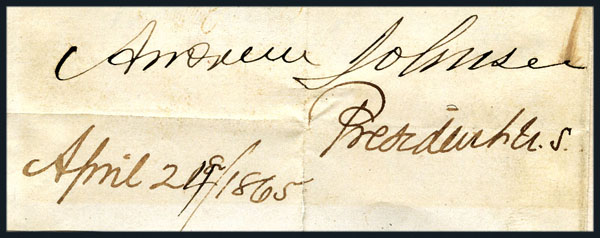 Andrew Johnson
President U.S.
April 21st/1865